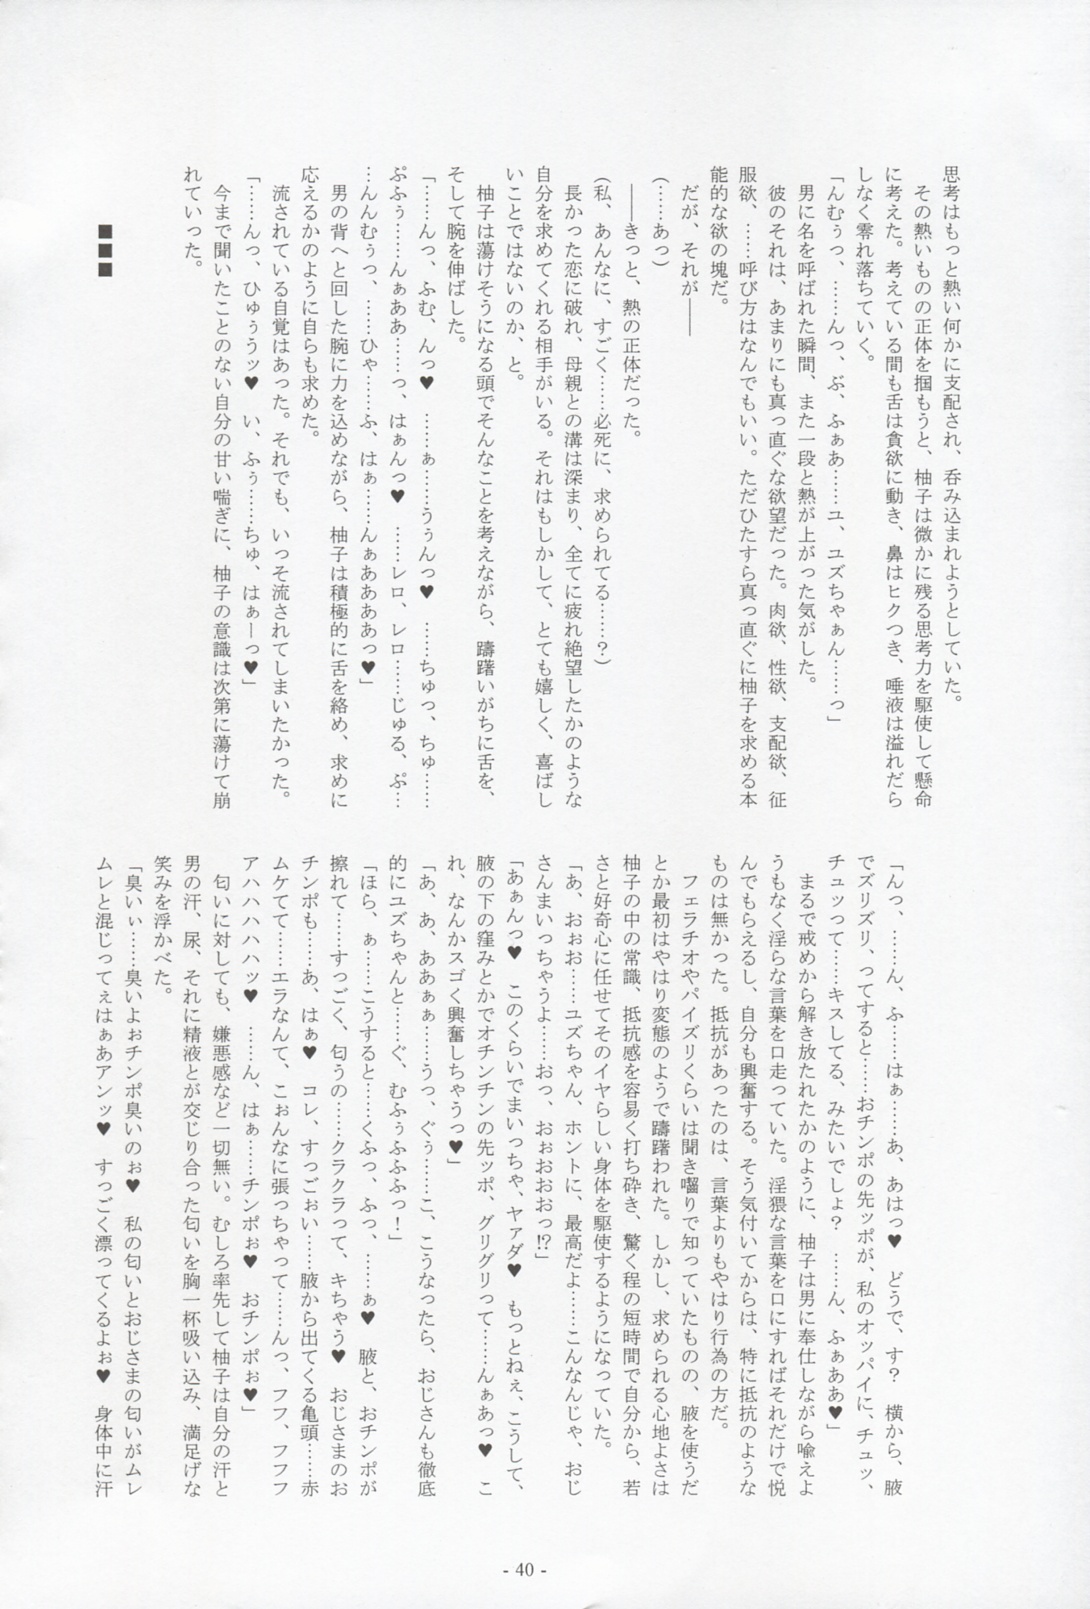 思考はもっと熱い何かに支配され、呑み込まれようとしていた。
その熱いものの正体を掴もうと、柚子は微かに残る思考力を駆使して懸命
に考えた。考えている間も舌は貪欲に動き、鼻はヒクつき、唾液は溢れだら
しなく零れ落ちていく。
「んむぅっ、……んっ、ぶ、ふぁあ……ユ、ユズちゃぁん……っ」
男に名を呼ばれた瞬間、また一段と熱が上がった気がした。
彼のそれは、あまりにも真っ直ぐな欲望だった。肉欲、性欲、支配欲、征
服欲、……呼び方はなんでもいい。ただひたすら真っ直ぐに柚子を求める本
能的な欲の塊だ。
だが、それが――
(……あっ)
――きっと、熱の正体だった。
(私、あんなに、すごく……必死に、求められてる……？)
長かった恋に破れ、母親との溝は深まり、全てに疲れ絶望したかのような
自分を求めてくれる相手がいる。それはもしかして、とても嬉しく、喜ばし
いことではないのか、と。
柚子は蕩けそうになる頭でそんなことを考えながら、躊躇いがちに舌を、
そして腕を伸ばした。
「……んっ、ふむ、んっ♥　……ぁ……うぅんっ♥　……ちゅっ、ちゅ……
ぷふぅ……んぁああ……っ、はぁんっ♥　……レロ、レロ……じゅる、ぷ…
…んんむぅっ、……ひゃ……ふ、はぁ……んぁああああっ♥」
男の背へと回した腕に力を込めながら、柚子は積極的に舌を絡め、求めに
応えるかのように自らも求めた。
流されている自覚はあった。それでも、いっそ流されてしまいたかった。
「……んっ、ひゅぅうッ♥　い、ふぅ……ちゅ、はぁーっ♥」
今まで聞いたことのない自分の甘い喘ぎに、柚子の意識は次第に蕩けて崩
れていった。
■■■
「んっ、……ん、ふ……はぁ……あ、あはっ♥　どうで、す？　横から、腋
でズリズリ、ってすると……おチンポの先ッポが、私のオッパイに、チュッ、
チュッって……キスしてる、みたいでしょ？　……ん、ふぁああ♥」
まるで戒めから解き放たれたかのように、柚子は男に奉仕しながら喩えよ
うもなく淫らな言葉を口走っていた。淫猥な言葉を口にすればそれだけで悦
んでもらえるし、自分も興奮する。そう気付いてからは、特に抵抗のような
ものは無かった。抵抗があったのは、言葉よりもやはり行為の方だ。
フェラチオやパイズリくらいは聞き囓りで知っていたものの、腋を使うだ
とか最初はやはり変態のようで躊躇われた。しかし、求められる心地よさは
柚子の中の常識、抵抗感を容易く打ち砕き、驚く程の短時間で自分から、若
さと好奇心に任せてそのイヤらしい身体を駆使するようになっていた。
「あ、おぉお……ユズちゃん、ホントに、最高だよ……こんなんじゃ、おじ
さんまいっちゃうよ……おっ、おぉおおおっ!?」
「あぁんっ♥　このくらいでまいっちゃ、ヤァダ♥　もっとねぇ、こうして、
腋の下の窪みとかでオチンチンの先ッポ、グリグリって……んぁあっ♥　こ
れ、なんかスゴく興奮しちゃうっ♥」
「あ、あ、ああぁぁ……うっ、ぐぅ……こ、こうなったら、おじさんも徹底
的にユズちゃんと……ぐ、むふぅふふふっ！」
「ほら、ぁ……こうすると……くふっ、ふっ、……ぁ♥　腋と、おチンポが
擦れて……すっごく、匂うの……クラクラって、キちゃう♥　おじさまのお
チンポも……あ、はぁ♥　コレ、すっごぉい……腋から出てくる亀頭……赤
ムケてて……エラなんて、こぉんなに張っちゃって……んっ、フフ、フフフ
アハハハハハッ♥　……ん、はぁ……チンポぉ♥　おチンポぉ♥」
匂いに対しても、嫌悪感など一切無い。むしろ率先して柚子は自分の汗と
男の汗、尿、それに精液とが交じり合った匂いを胸一杯吸い込み、満足げな
笑みを浮かべた。
「臭いぃ……臭いよぉチンポ臭いのぉ♥　私の匂いとおじさまの匂いがムレ
ムレと混じってぇはぁあアンッ♥　すっごく漂ってくるよぉ♥　身体中に汗
- 40 -